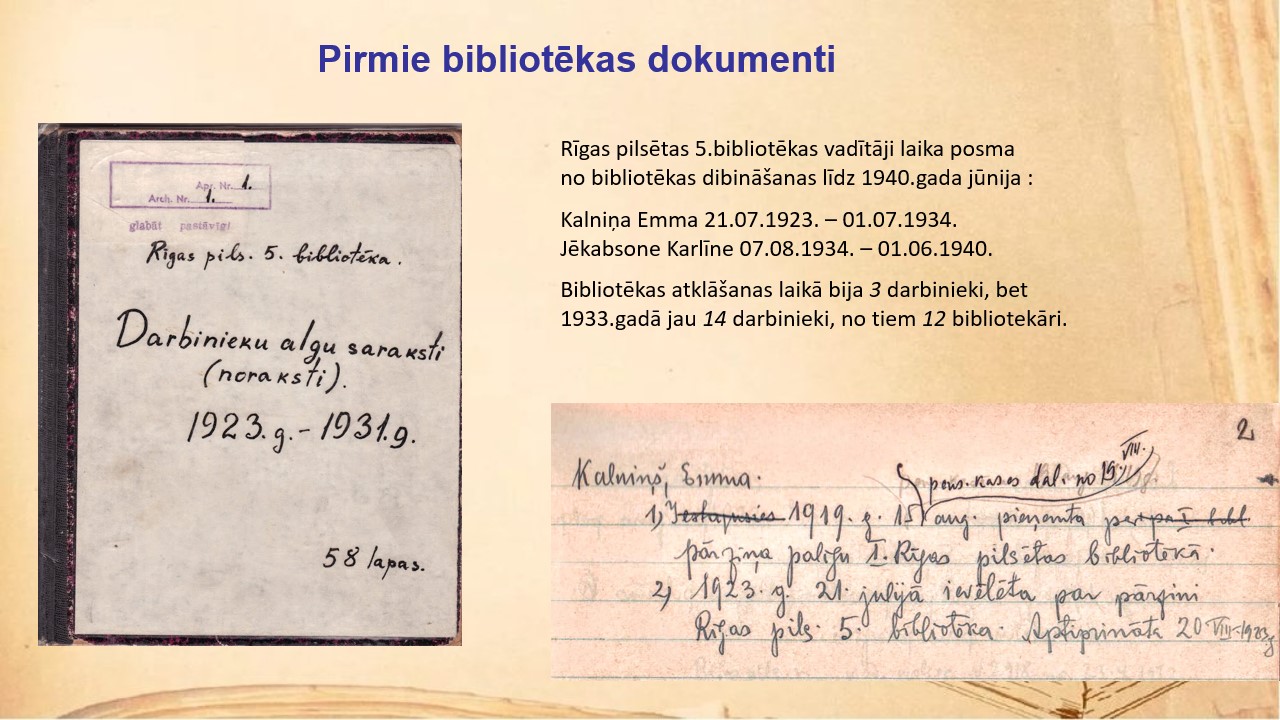 Pirmie bibliotēkas dokumenti
Apr. Nr. 1.
Arch. Nr. 1.
glabāt pastāvīgi
Rīgas pils. 5. bibliotēka.
Darbinieku algu saraksti
(noraksti).
1923.g. - 1931.g.
58 lapas.
Rīgas pilsētas 5.bibliotēkas vadītāji laika posma
no bibliotēkas dibināšanas līdz 1940.gada jūnija :
Kalniņa Emma 21.07.1923. – 01.07.1934.
Jēkabsone Karlīne 07.08.1934. – 01.06.1940.
Bibliotēkas atklāšanas laikā bija 3 darbinieki, bet
1933.gadā jau 14 darbinieki, no tiem 12 bibliotekāri.
2
Kalniņš, Emma.
pens. kases dal. no 19. VIII.
1) Iestājusies 1919. g. 15 aug. pieņemta par I bibl.
pārziņa palīgu I. Rīgas pilsētas bibliotēkā.
2) 1923. g. 21. julijā ievēlēta par pārzini
Rīgas pils. 5. bibliotēka. Apstiprināta 20 VIII-1923g